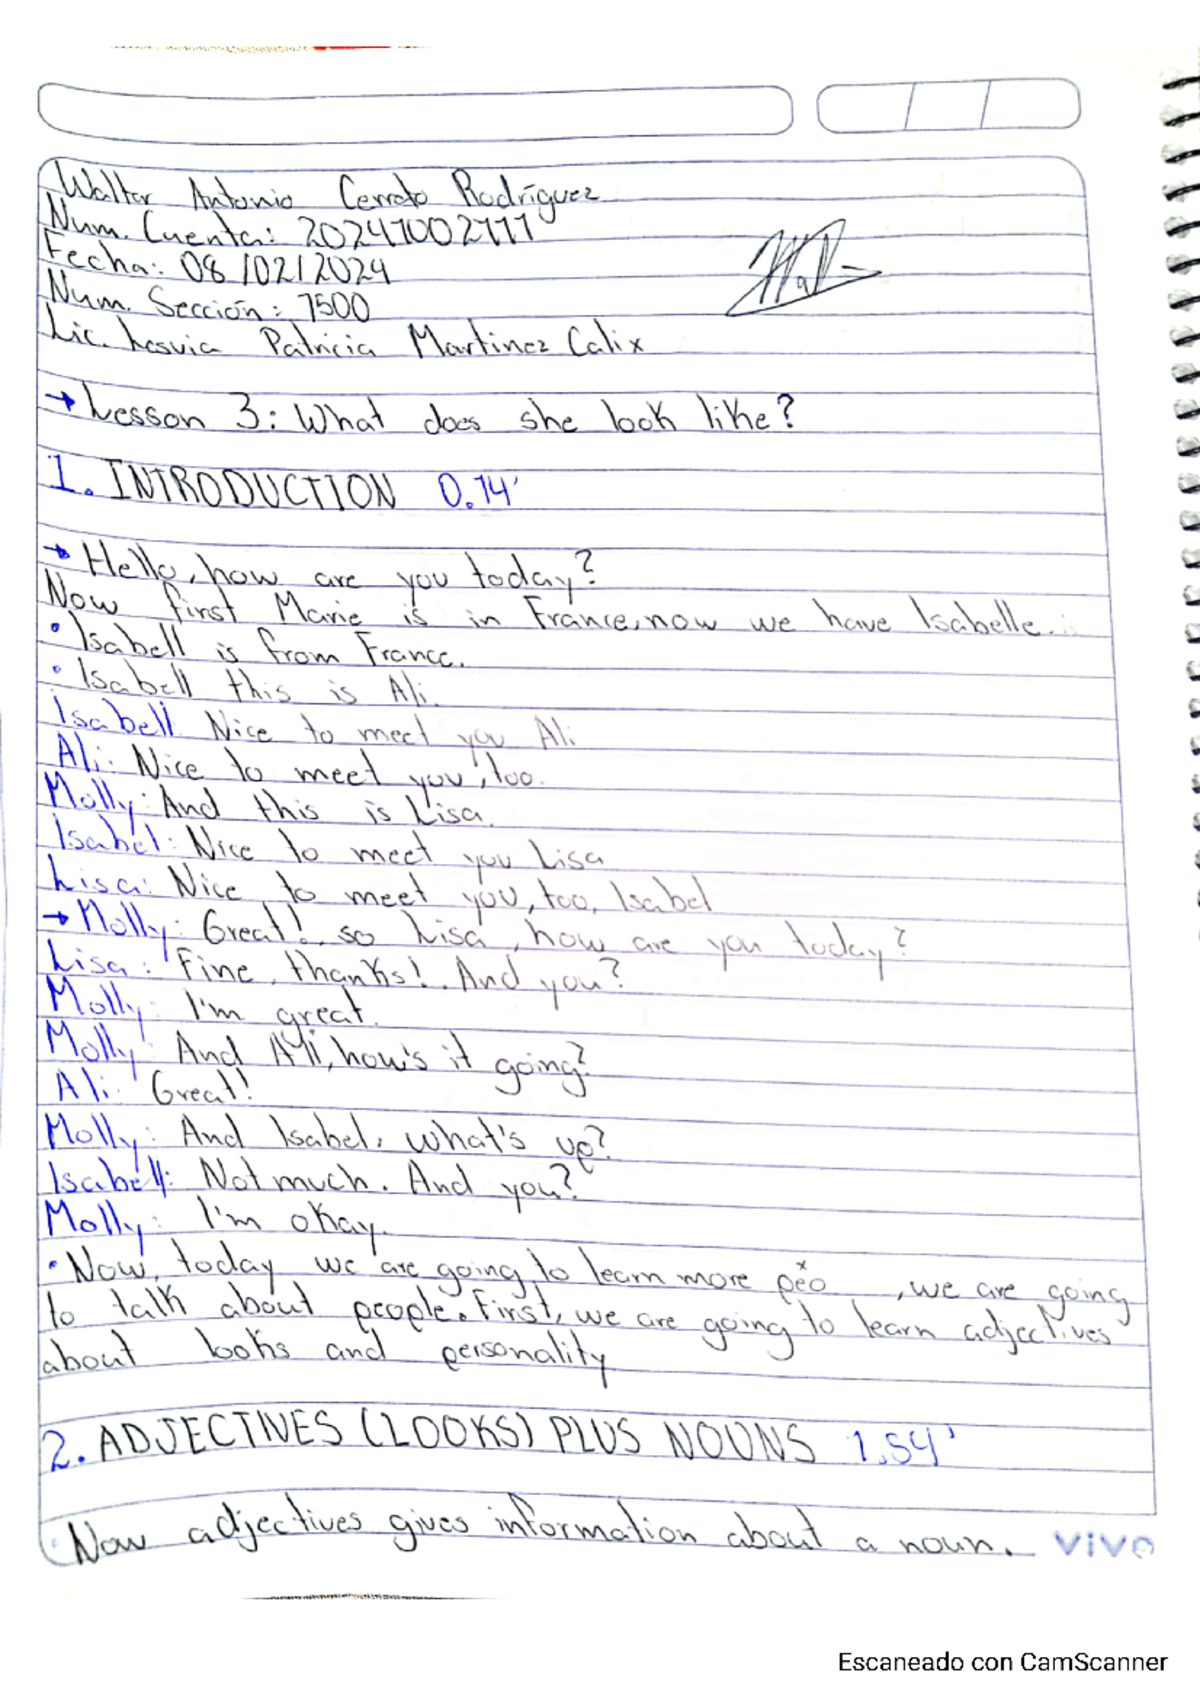 Walter Antonio Cerrato Rodríguez
Num. Cuenta: 20241002111
Fecha: 08/02/2024
Num. Sección: 1500
Lic. Lesvia Patricia Martinez Calix
→ Lesson 3: What does she look like?
1. INTRODUCTION 0.14'
→ Hello, how are you today?
Now first Marie is in France, now we have Isabelle.
• Isabell is from France.
• Isabell this is Ali.
Isabell: Nice to meet you Ali
Ali: Nice to meet you, too.
Molly: And this is Lisa.
Isabel: Nice to meet you Lisa
Lisa: Nice to meet you, too, Isabel
→ Molly: Great!, so Lisa, how are you today?
Lisa: Fine, thanks! And you?
Molly: I'm great.
Molly: And Ali, how's it going?
Ali: Great!
Molly: And Isabel, what's up?
Isabell: Not much. And you?
Molly: I'm okay.
• Now, today we are going to learn more peo , we are going
to talk about people. First, we are going to learn adjectives
about looks and personality
2. ADJECTIVES (LOOKS) PLUS NOUNS 1.54'
• Now adjectives gives information about a noun.
vivo
Escaneado con CamScanner